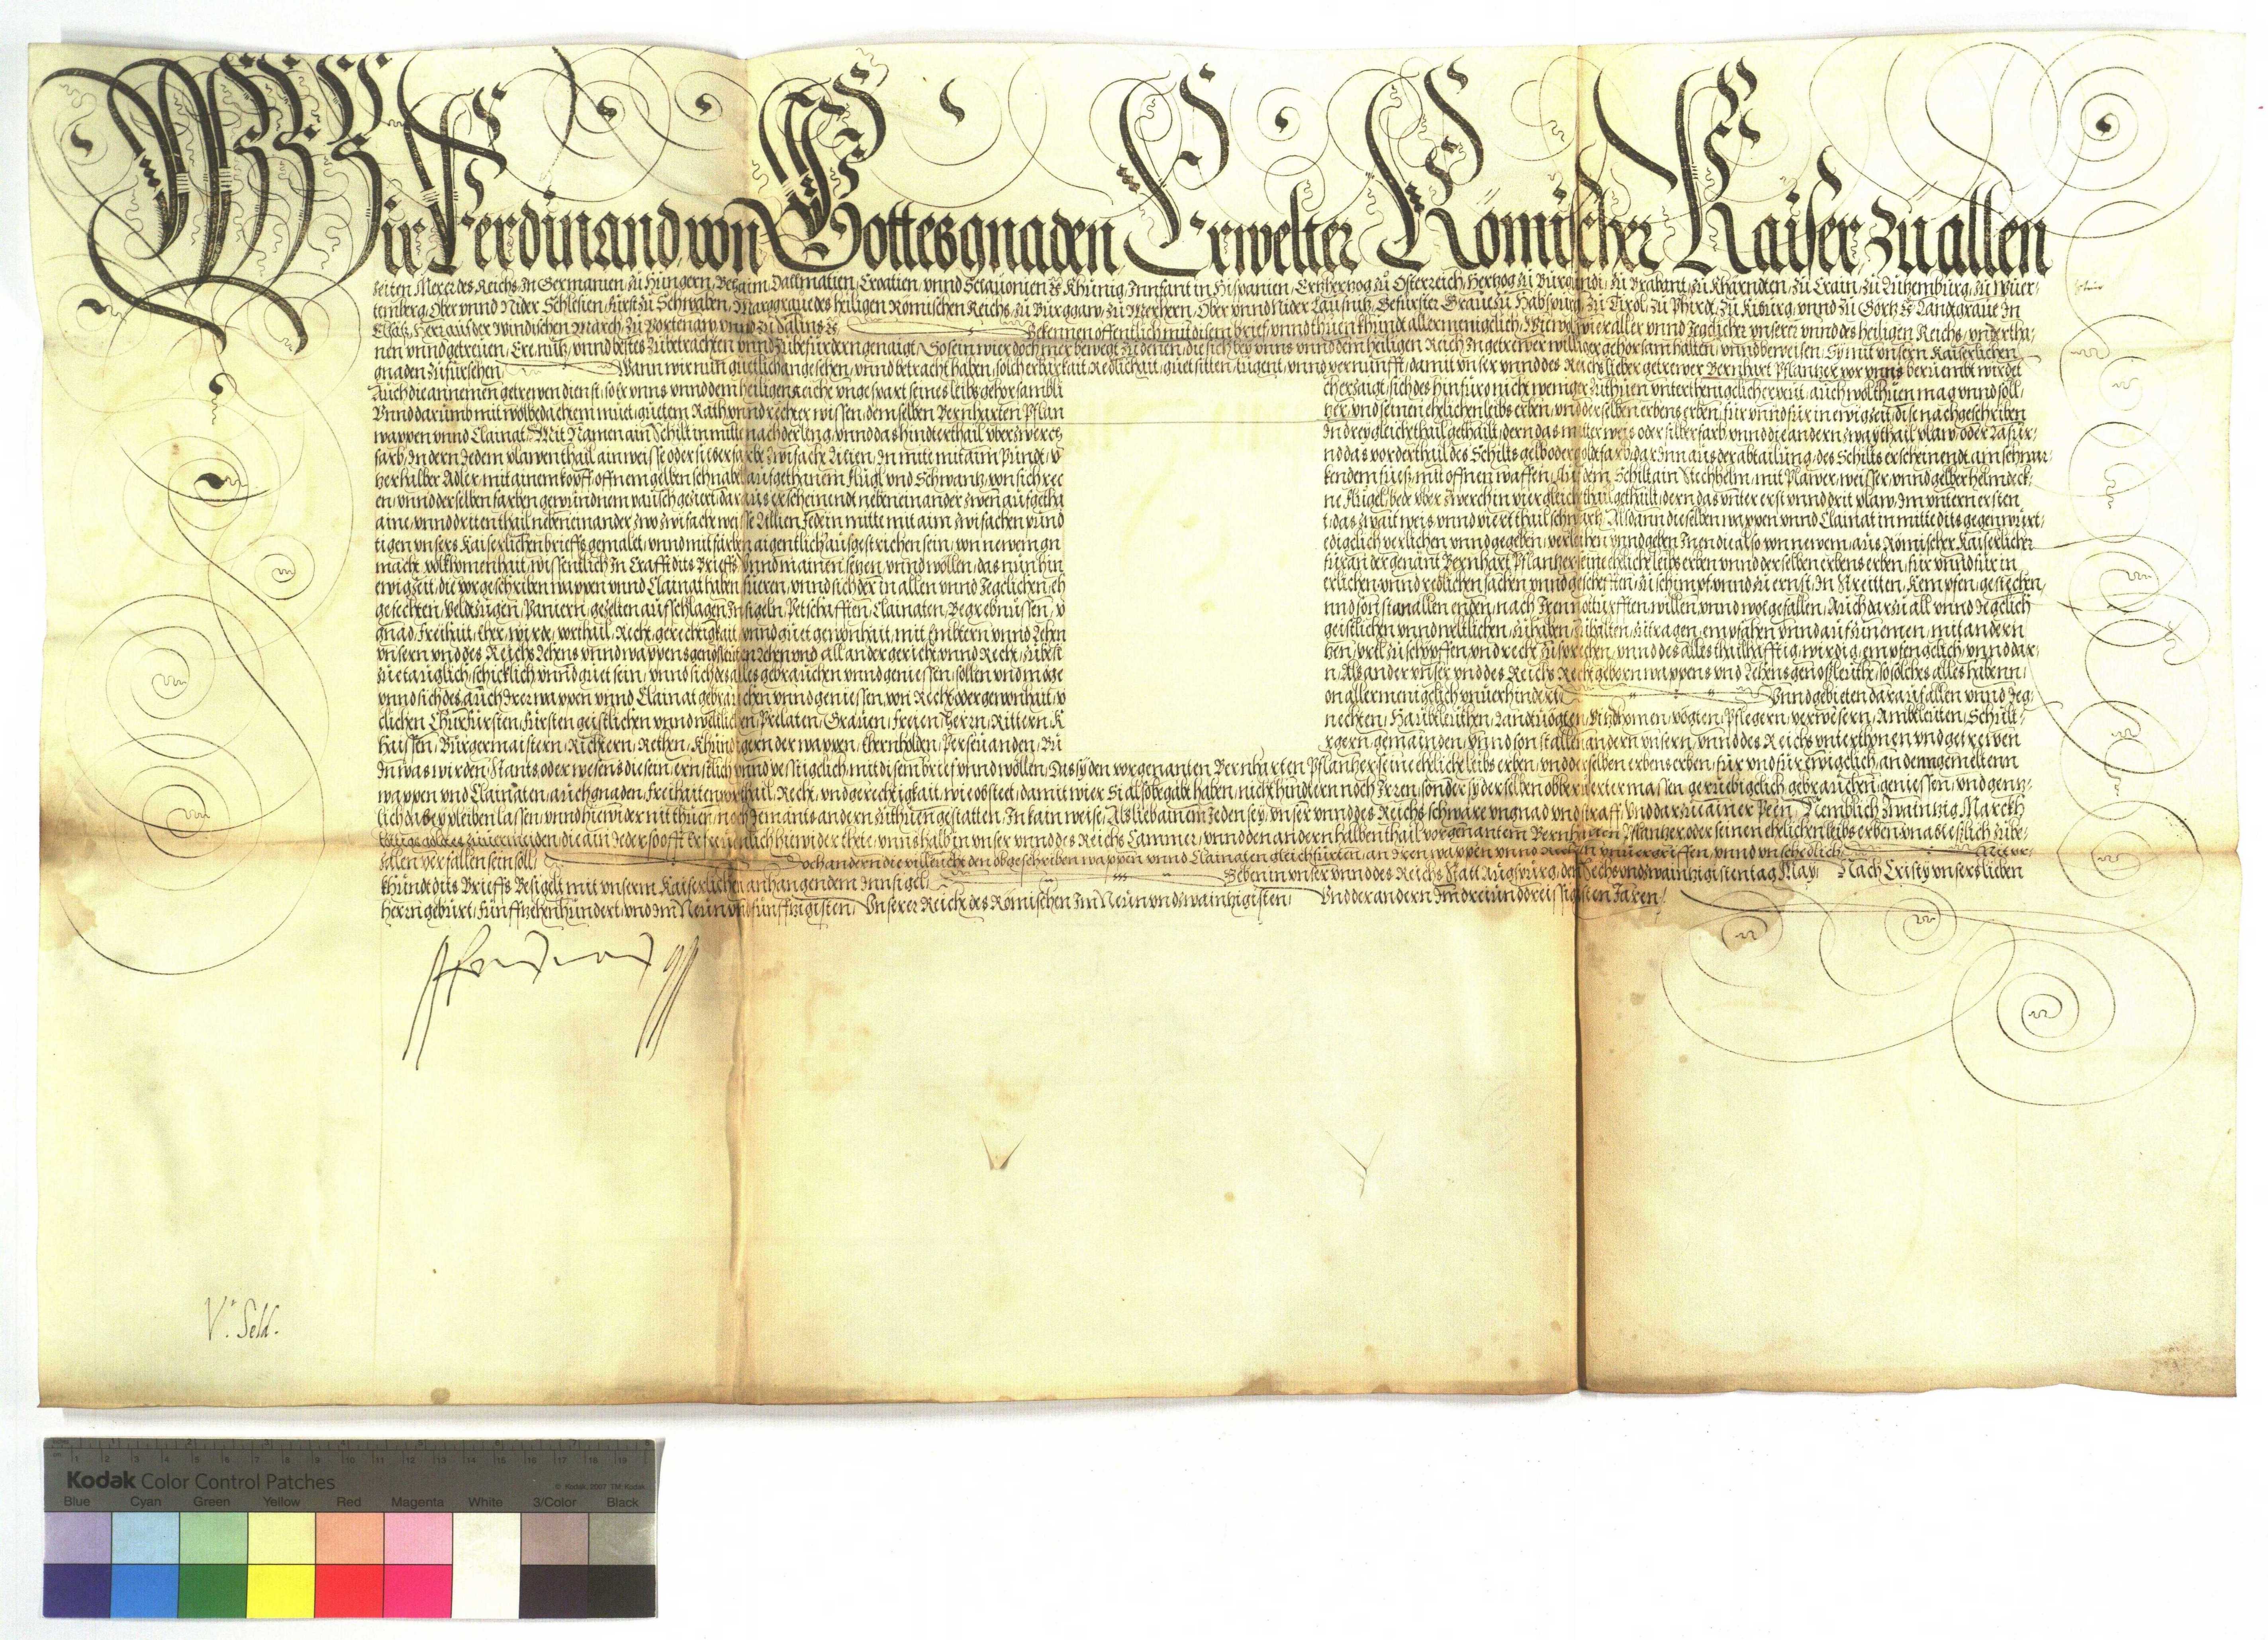 Wir Ferdinand von Gottes gnaden Erwelter Römischer Kaiser zu allen
zeiten Merer des Reichs, In Germanien, zu Hungern, Behaim Dallmatien, Croatien, vnnd Sclauonien &c Khünig, Innfant in Hispanien, Ertzhertzog zu Osterreich, Hertzog zu Burgundi, zu Brabant, zu Kharndten, zu Crain, zu Lützemburg, zu Wier-
temberg, Ober vnnd Nider Schlesien, Fürst zu Schwaben, Marggraue des heiligen Römischen Reichs, zu Burggaw, zu Merhern, Ober vnnd Nider Lausnitz, Gefürster Graue zu Habspurg, zu Tirol, zu Phirdt, zu Kiburg, vnnd zu Görtz &c Landtgraue In
Elsäß, Herr auf der Windischen March, zu Portenaw, vnnd zu Salins &c Bekennen offentlich mit disem brief, vnnd thuen khundt allermenigelich, Wiewol wier aller vnnd Jegelicher vnserer vnnd des heiligen Reichs, vnndertha-
nen vnnd getreuen, Ere, nutz, vnnd bestes zubetrachten vnnd zubefürdern genaigt, So sein wier doch mer bewegt zu denen, die sich bey vnns vnnd dem heiligen Reich In getrewer williger gehorsam halten, vnnd beweisen, Sy mit vnsern Kaiserlichen
gnaden zufürsehen Wann wir nun güetlich angesehen, vnnd betracht haben, solch erbarkait Redlichait, guet sitten, tugent, vnnd vernunfft, damit vnser vnnd des Reichs lieber getrewer Bernhart Pflantzer vor vnns beruembt wirdet
Auch die annemen getrewen dienst, so er vnns vnnd dem heiligen reiche vngespart seines leibs gehorsambli cherzaigt, sich des hinfüro nicht weniger zuthuen vnterthenigelich erpeut, auch wol thuen mag vnnd soll,
Vnnd darumb mit wolbedachtem muet, guetem Rath vnnd rechter wissen, demselben Bernharten Pflan tzer, vnd seinen ehelichen leibs erben, vnd derselben erbens erben, für vnnd für in ewig zeit, dise nachgeschriben
wappen vnnd Clainat, Mit Namen ain Schilt in mitte nach der leng, vnnd das hinderthail vberzwerch In drey gleiche thail gethailt, dern das mitter weis oder silberfarb, vnnd die andern zway thail plaw, oder Lasur-
farb, In dern Jedem plawen thail ain weisse oder silberfarbe zwifache Lilien, In mitte mit aim Pundt, v nnd das vorderthail des Schilts gelb oder goldfarb, darInn aus der abtailung, des Schilts erscheinendt ain schwar-
tzer halber Adler, mit ainem kopff, offnem gelben schnabel, aufgethanem Flügl, vnd Schwantz, von sich rec kendem fueß, mit offnen waffen, Auf dem Schilt ain Stechhelm, mit Plawer, weisser, vnnd gelber helmdeck-
en, vnnd derselben farben gewundnem pausch geziert, daraus erscheinendt nebeneinander zwen aufgetha ne Flügel, bede vber zwerch in vier gleiche thail gethailt, dern das vnter erst vnnd drit plaw, Im vntern ersten
aine, vnnd dritten thail nebeneinander zwo zwifache weisse Lillien Jede in mitte mit aim zwifachen pund t, das zwait weis, vnnd viert thail schwartz, Alsdann dieselben wappen vnnd Clainat in mitte dits gegenwürt-
tigen vnsers Kaiserlichen brieffs gemalet, vnnd mit farben aigentlich ausgestrichen sein, von newem gn edigelich verlichen vnnd gegeben, verleihen vnnd geben Inen die also von newem, aus Römischer Kaiserlicher
macht volkhomenhait, wissentlich In Crafft dits Brieffs, Vnnd mainen, setzen, vnnd wöllen, das nun hin füran der genant Bernhart Pflantzer, seine eheliche leibs erben, vnnd derselben erbens erben, für vnnd für in
ewig zeit, die vorgeschriben wappen vnnd Clainat haben, fueren, vnnd sich der in allen vnnd Jegelichen, eh erlichen, vnnd redlichen sachen, vnnd geschefften, zu schimpf vnnd zu ernst, In Streitten, Kempfen, gestechen,
gefechten, veldtzügen, Paniern, gezelten aufschlagen, Insigeln, Petschafften, Clainaten, Begrebnussen, v nnd sonst an allen enden, nach Iren notturfften, willen, vnnd wolgefallen, Auch darzu all vnnd Jegelich
gnad, Freihait, Ehr, wirde, vorthail, Recht, gerechtigkait, vnnd guet gewonhait, mit Embtern vnnd Lehen geistlichen vnnd weltlichen, zuhaben, zuhalten, zutragen, empfahen vnnd aufzunemen, mit andern
vnsern vnd des Reichs Lehens vnnd wappens genosleuten Lehen vnd all ander gericht, vnnd Recht, zubesi tzen, vrtl zu schöpffen, vnd recht zusprechen, vnnd des alles thailhafftig, wirdig, empfengelich, vnnd dar-
zue tauglich, schicklich, vnnd guet sein, vnnd sich des alles gebrauchen vnnd geniessen, sollen vnd möge n, Als ander vnser vnd des Reichs Recht geborn wappens vnd Lehens genoßleuthe, so solches alles haben,
vnnd sich des, auch Irer wappen vnnd Clainat gebrauchen vnnd geniessen, von Recht oder gewonhait, v on allermenigelich vnuerhindert Vnnd gebieten darauf allen vnnd Jeg-
elichen Churfürsten, Fürsten geistlichen vnnd weltlichen, Prelaten, Grauen, Freien, Herrn, Rittern, K nechten, Haubtleuthen, Landtuögten, Vitzdhomen, vögten, Pflegern, verwesern, Ambtleuten, Schult-
haissen, Burgermaistern, Richtern, Rethen, Khundigern der wappen, Ehernholden, Perseuanden, Bu rgern, gemainden, vnnd sonst allen andern vnsern, vnnd des Reichs vnterthonen vnd getrewen
In was wirden, Stants, oder wesens die sein, ernstlich vnnd vesstigelich, mit disem brief, vnnd wöllen, das sy den vorgenanten Bernharten Pflantzer, seine ehrliche leibs erben, vnd derselben erbens erben, für vnd für ewigelich, an den gemelten
wappen vnd Clainaten, auch gnaden, Freihaiten, vorthail, Recht, vnd gerechtigkait, wie obsteet, damit wier Si also begabt haben, nicht hindern noch Irren, sonder sy derselben obberuerter massen, geruebigelich gebrauchen, geniessen, vnd genntz-
lich dabey pleiben lassen, vnnd hiewider nit thuen, noch Jemants andern zuthuen gestatten, In kain weise, Als lieb ainem Jeden sey, vnser vnnd des Reichs schwäre vngnad vnd straff, Vnd darzu ainer Peen, Nemblich Zwaintzig Marckh
lötigs goldes zuuermeiden, die ain Jeder so offt er freuenlich hiewider thete, vnns halb in vnser vnnd des Reichs Cammer, vnnd den andern halben thail vorgenantem Bernharten Pflantzer, oder seinen ehrlichen leibs erben vnabläßlich zube-
zalen verfallen sein soll, Doch andern die villeicht den obgeschriben wappen vnnd Clainaten gleich fürten, an Iren wappen vnnd Rechten vnuergriffen, vnnd vnschedlich. Mit vr-
khundt dits Brieffs Besigelt mit vnserm Kaiserlichen anhangendem Innsigel, Geben in vnser vnnd des Reichs Statt Augspurg, den Sechsvndzwaintzigisten tag May, Nach Cristy vnsers lieben
herrn geburt, Fünffzehenhundert, vnd Im Neunvndfünfftzigisten, Vnserer Reiche des Römischen Im Neunvndzwaintzigisten, Vnd der andern Im dreiunddreissigisten Jaren.
Ferdinand
Vt. Seld.
Kodak Color Control Patches
© Kodak, 2007 TM: Kodak
Blue Cyan Green Yellow Red Magenta White 3/Color Black